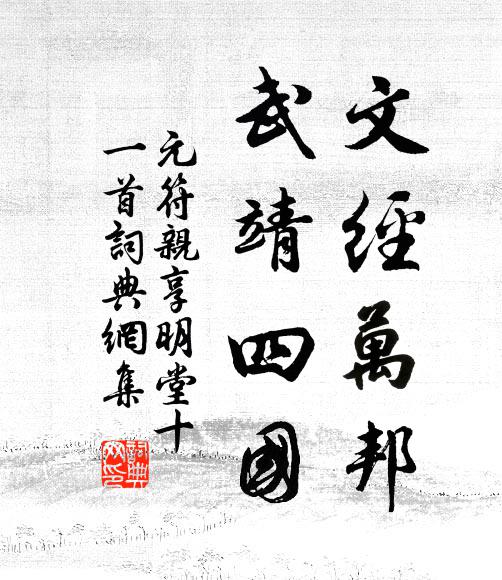 文經萬邦
武靖四國
元符親享明堂十
一首詞典網集
詞典
网印